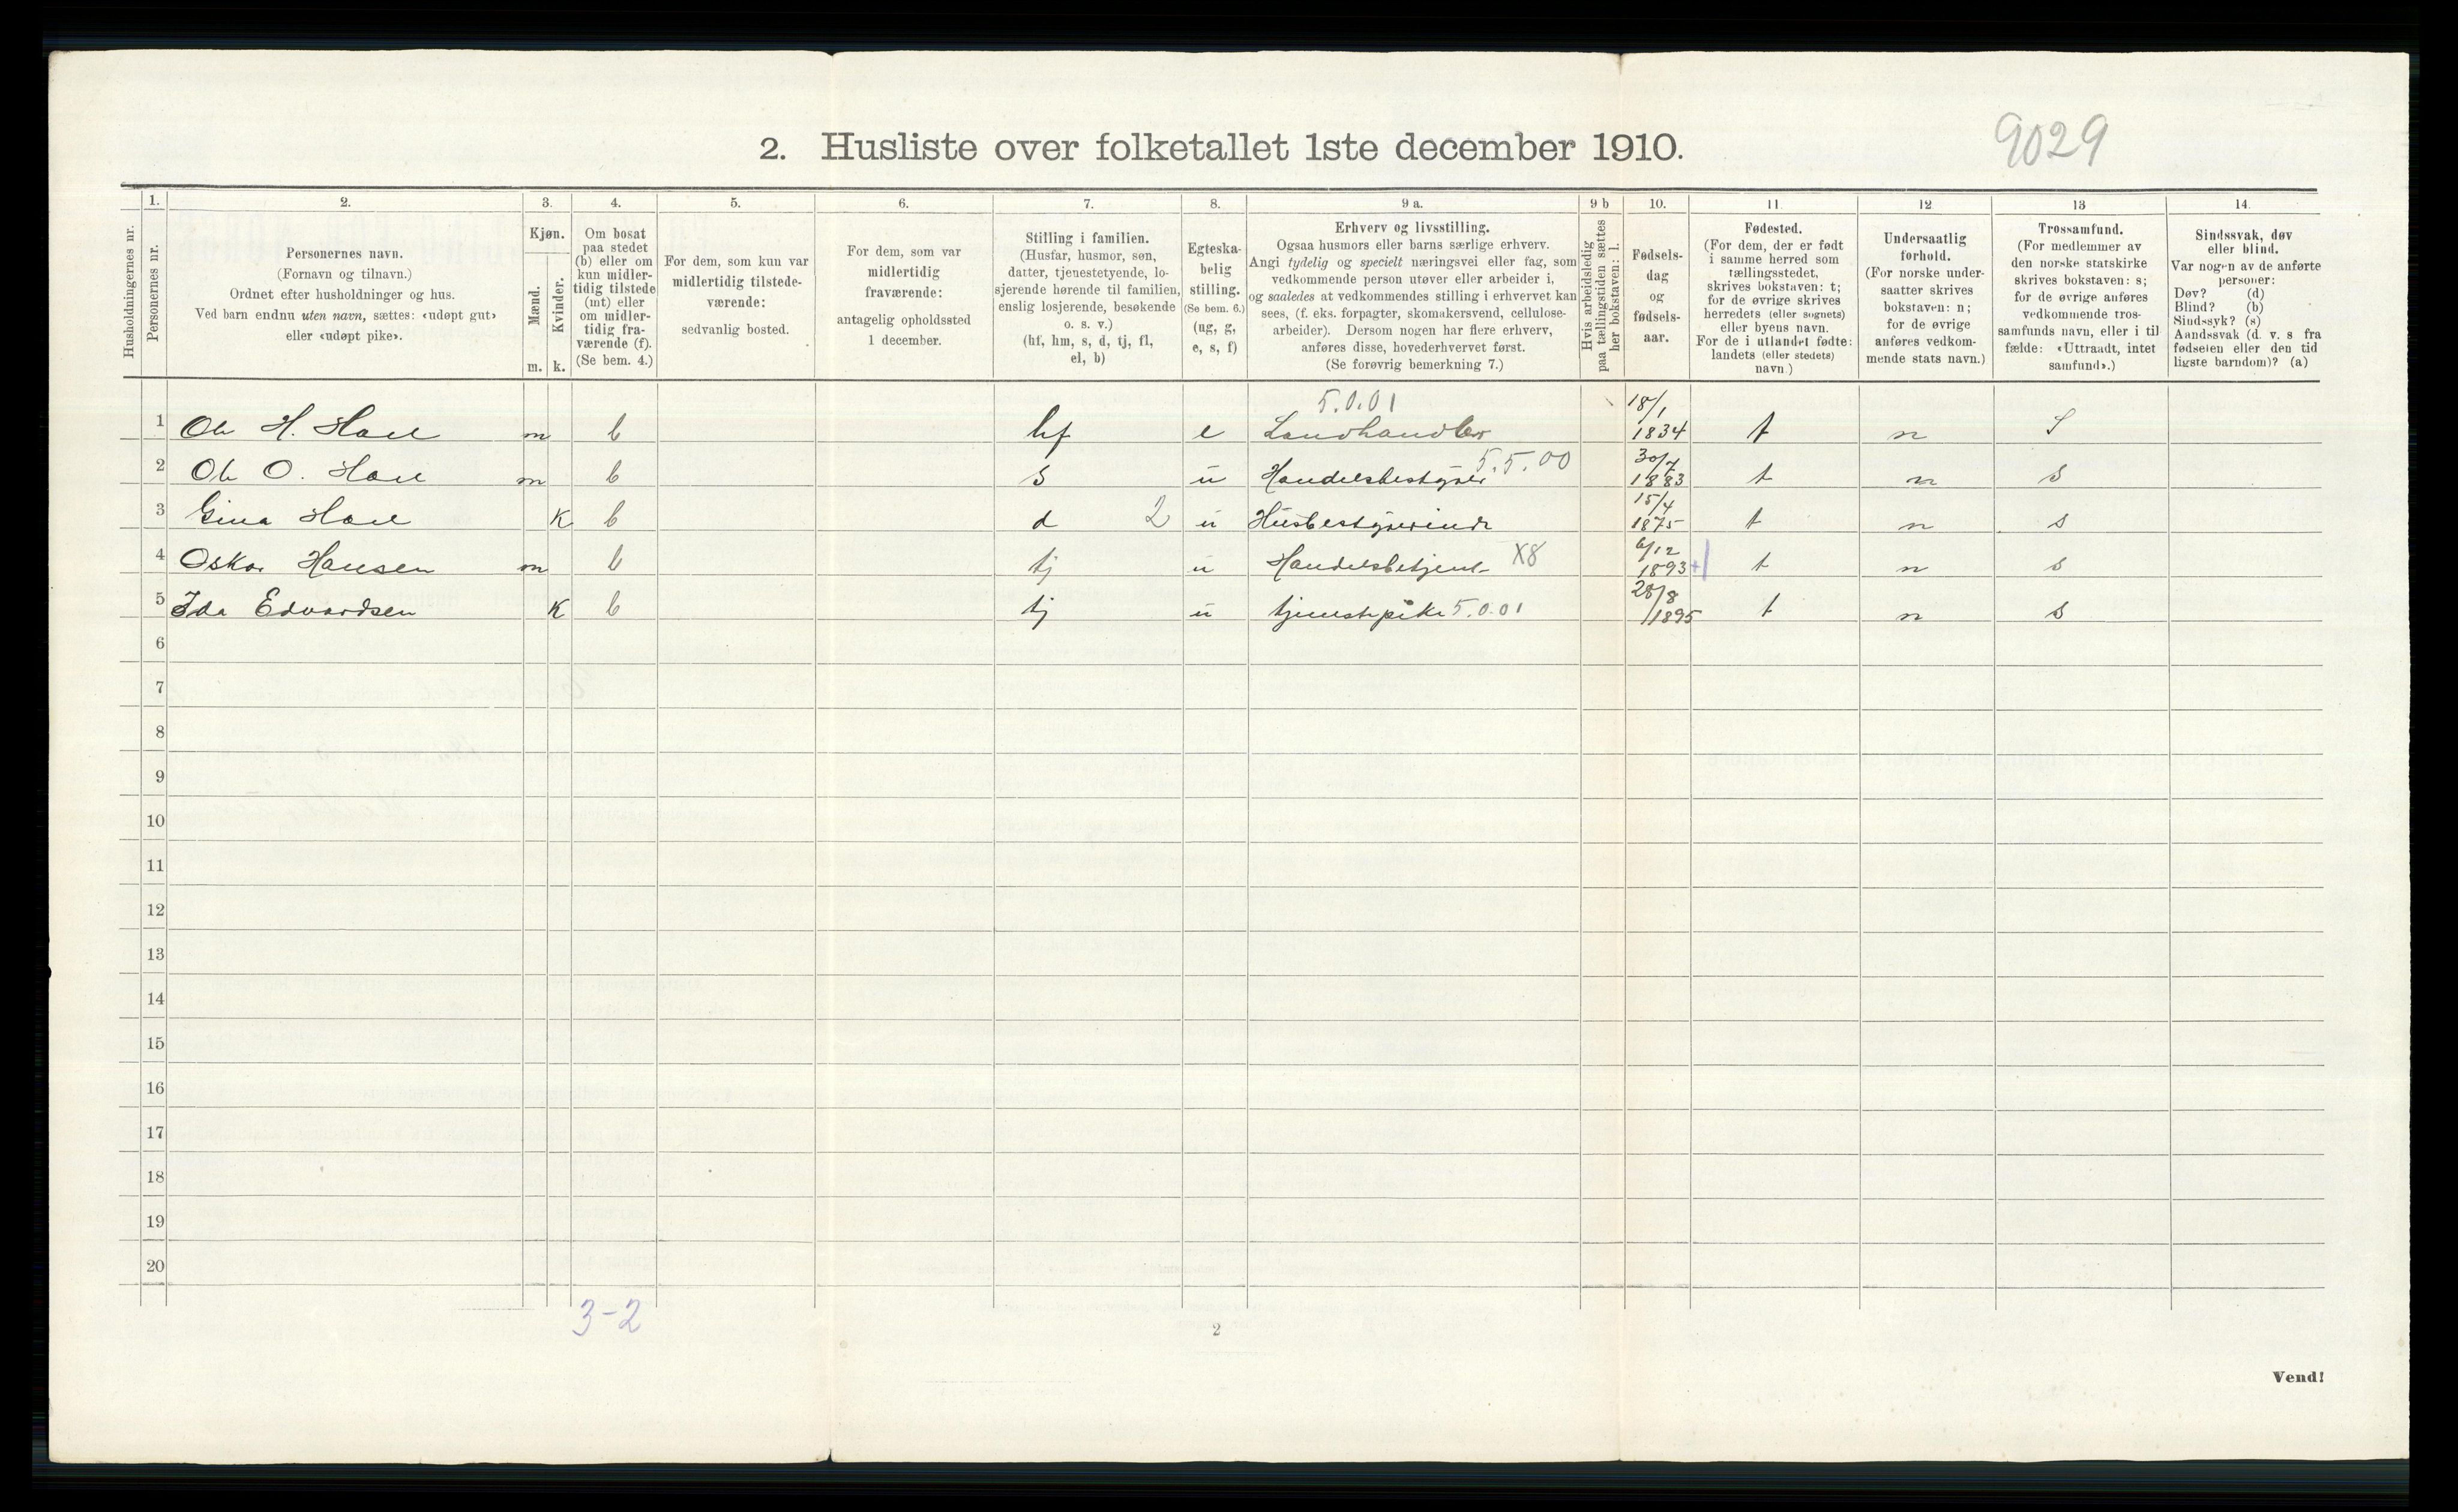 2. Husliste over folketallet 1ste december 1910.
9029
Husholdningernes nr.
1.
Personernes nr.
2.
Personernes navn.
(Fornavn og tilnavn.)
Ordnet efter husholdninger og hus.
Ved barn endnu uten navn, sættes: «udøpt gut»
eller «udøpt pike».
3.
Kjøn.
Mænd.
Kvinder.
m. k.
4.
Om bosat
paa stedet
(b) eller om
kun midler-
tidig tilstede
(mt) eller
om midler-
tidig fra-
værende (f).
(Se bem. 4.)
5.
For dem, som kun var
midlertidig tilstede-
værende:
sedvanlig bosted.
6.
For dem, som var
midlertidig
fraværende:
antagelig opholdssted
1 december.
7.
Stilling i familien.
(Husfar, husmor, søn,
datter, tjenestetyende, lo-
sjerende hørende til familien,
enslig losjerende, besøkende
o. s. v.)
(hf, hm, s, d, tj, fl,
el, b)
8.
Egteska-
belig
stilling.
(Se bem. 6.)
(ug, g,
e, s, f)
9 a.
Erhverv og livsstilling.
Ogsaa husmors eller barns særlige erhverv.
Angi tydelig og specielt næringsvei eller fag, som
vedkommende person utøver eller arbeider i,
og saaledes at vedkommendes stilling i erhvervet kan
sees, (f. eks. forpagter, skomakersvend, cellulose-
arbeider). Dersom nogen har flere erhverv,
anføres disse, hovederhvervet først.
(Se forøvrig bemerkning 7.)
9 b
Hvis arbeidsledig
paa tællingstiden sættes
her bokstaven: l.
10.
Fødsels-
dag
og
fødsels-
aar.
11
Fødested.
(For dem, der er født
i samme herred som
tællingsstedet,
skrives bokstaven: t;
for de øvrige skrives
herredets (eller sognets)
eller byens navn.
For de i utlandet fødte:
landets (eller stedets)
navn.)
12
Undersaatlig
forhold.
(For norske under-
saatter skrives
bokstaven: n;
for de øvrige
anføres vedkom-
mende stats navn.)
13
Trossamfund.
(For medlemmer av
den norske statskirke
skrives bokstaven: s;
for de øvrige anføres
vedkommende tros-
samfunds navn, eller i til
fælde: «Uttraadt, intet
samfund».)
14.
Sindssvak, døv
eller blind.
Var nogen av de anførte
personer:
Døv? (d)
Blind? (b)
Sindssyk? (s)
Aandssvak (d. v. s fra
fødselen eller den tid
ligste barndom)? (a)
1 Ole H. m b hf e 5.0.01 Landhandler 18/1 1834 t n S
2 Ole O. m b s u Handelsbestyrer 5.5.00 30/7 1883 t n s
3 Gina K b d 2 u Husbestyrerinde 15/4 1875 t n s
4 Oskar Hansen m b tj u Handelsbetjent X8 6/12 1893 +1 t n s
5 Ida Edvardsen K b tj u tjenestepike 5.0.01 28/8 1895 t n s
6
7
8
9
10
11
12
13
14
15
16
17
18
19
20
3-2
2
Vend!